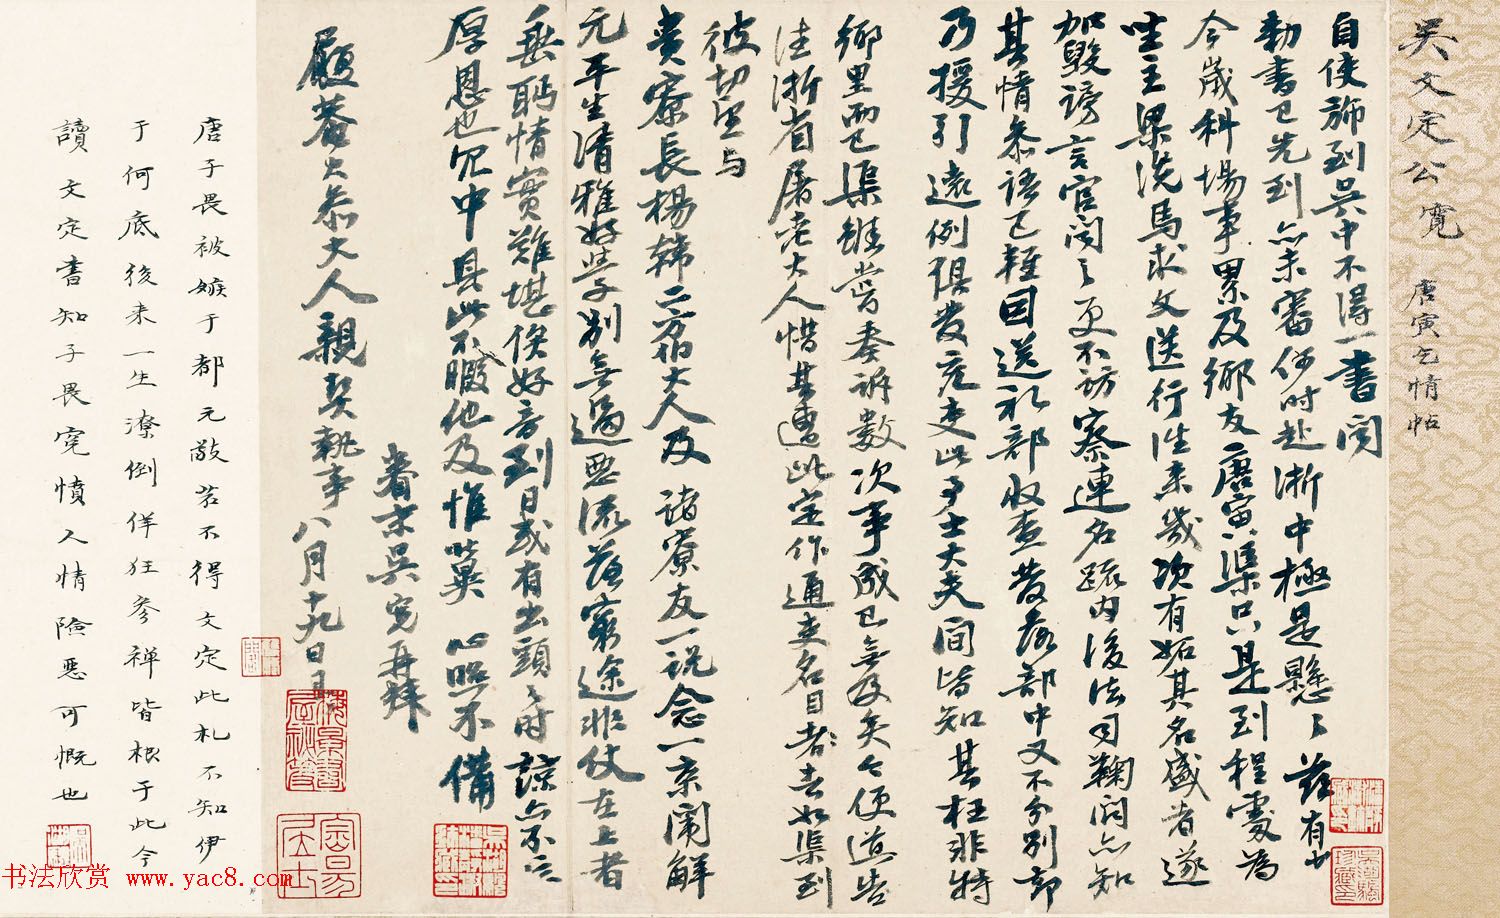 吴文定公寬
唐寅乞情帖
自使旆到吳中不得一書聞
勅書已先到亦未審何時赴浙中極是懸懸茲有少
今歲科場事累及鄉友唐寅渠只是到程處為
坐主梁洗馬求文送行往來幾次有妬其名盛者遂
加毀謗言官聞之更不訪察連名疏內後法司鞫問亦知
其情參語已輕因送禮部收查發落部中又不分別卻
乃援引遠例俱發充吏此事士大夫間皆知其枉非特
鄉里而已渠雖嘗奏訴數次事成已無及矣今便道告
往浙省屠老大人惜其遭此定作通吏名目者去如渠到
彼切望與
貴寮長楊韓二方伯大人及諸寮友一說念一京闈解
元平生清雅好學別無過惡流落窮途非仗在上者
垂眄情實難堪俟好音到日或有出頭之時諒亦不忘
厚恩也冗中具此不暇他及惟冀心照不備
眷末吳寬再拜
履菴大參大人親契執事八月十九日
唐子畏被嫉于都元敬若不得文定此札不知伊
于何底後來一生潦倒佯狂參禅皆根于此今
讀文定書知子畏冤憤人情險惡可慨也
书法欣赏 www.yac8.com